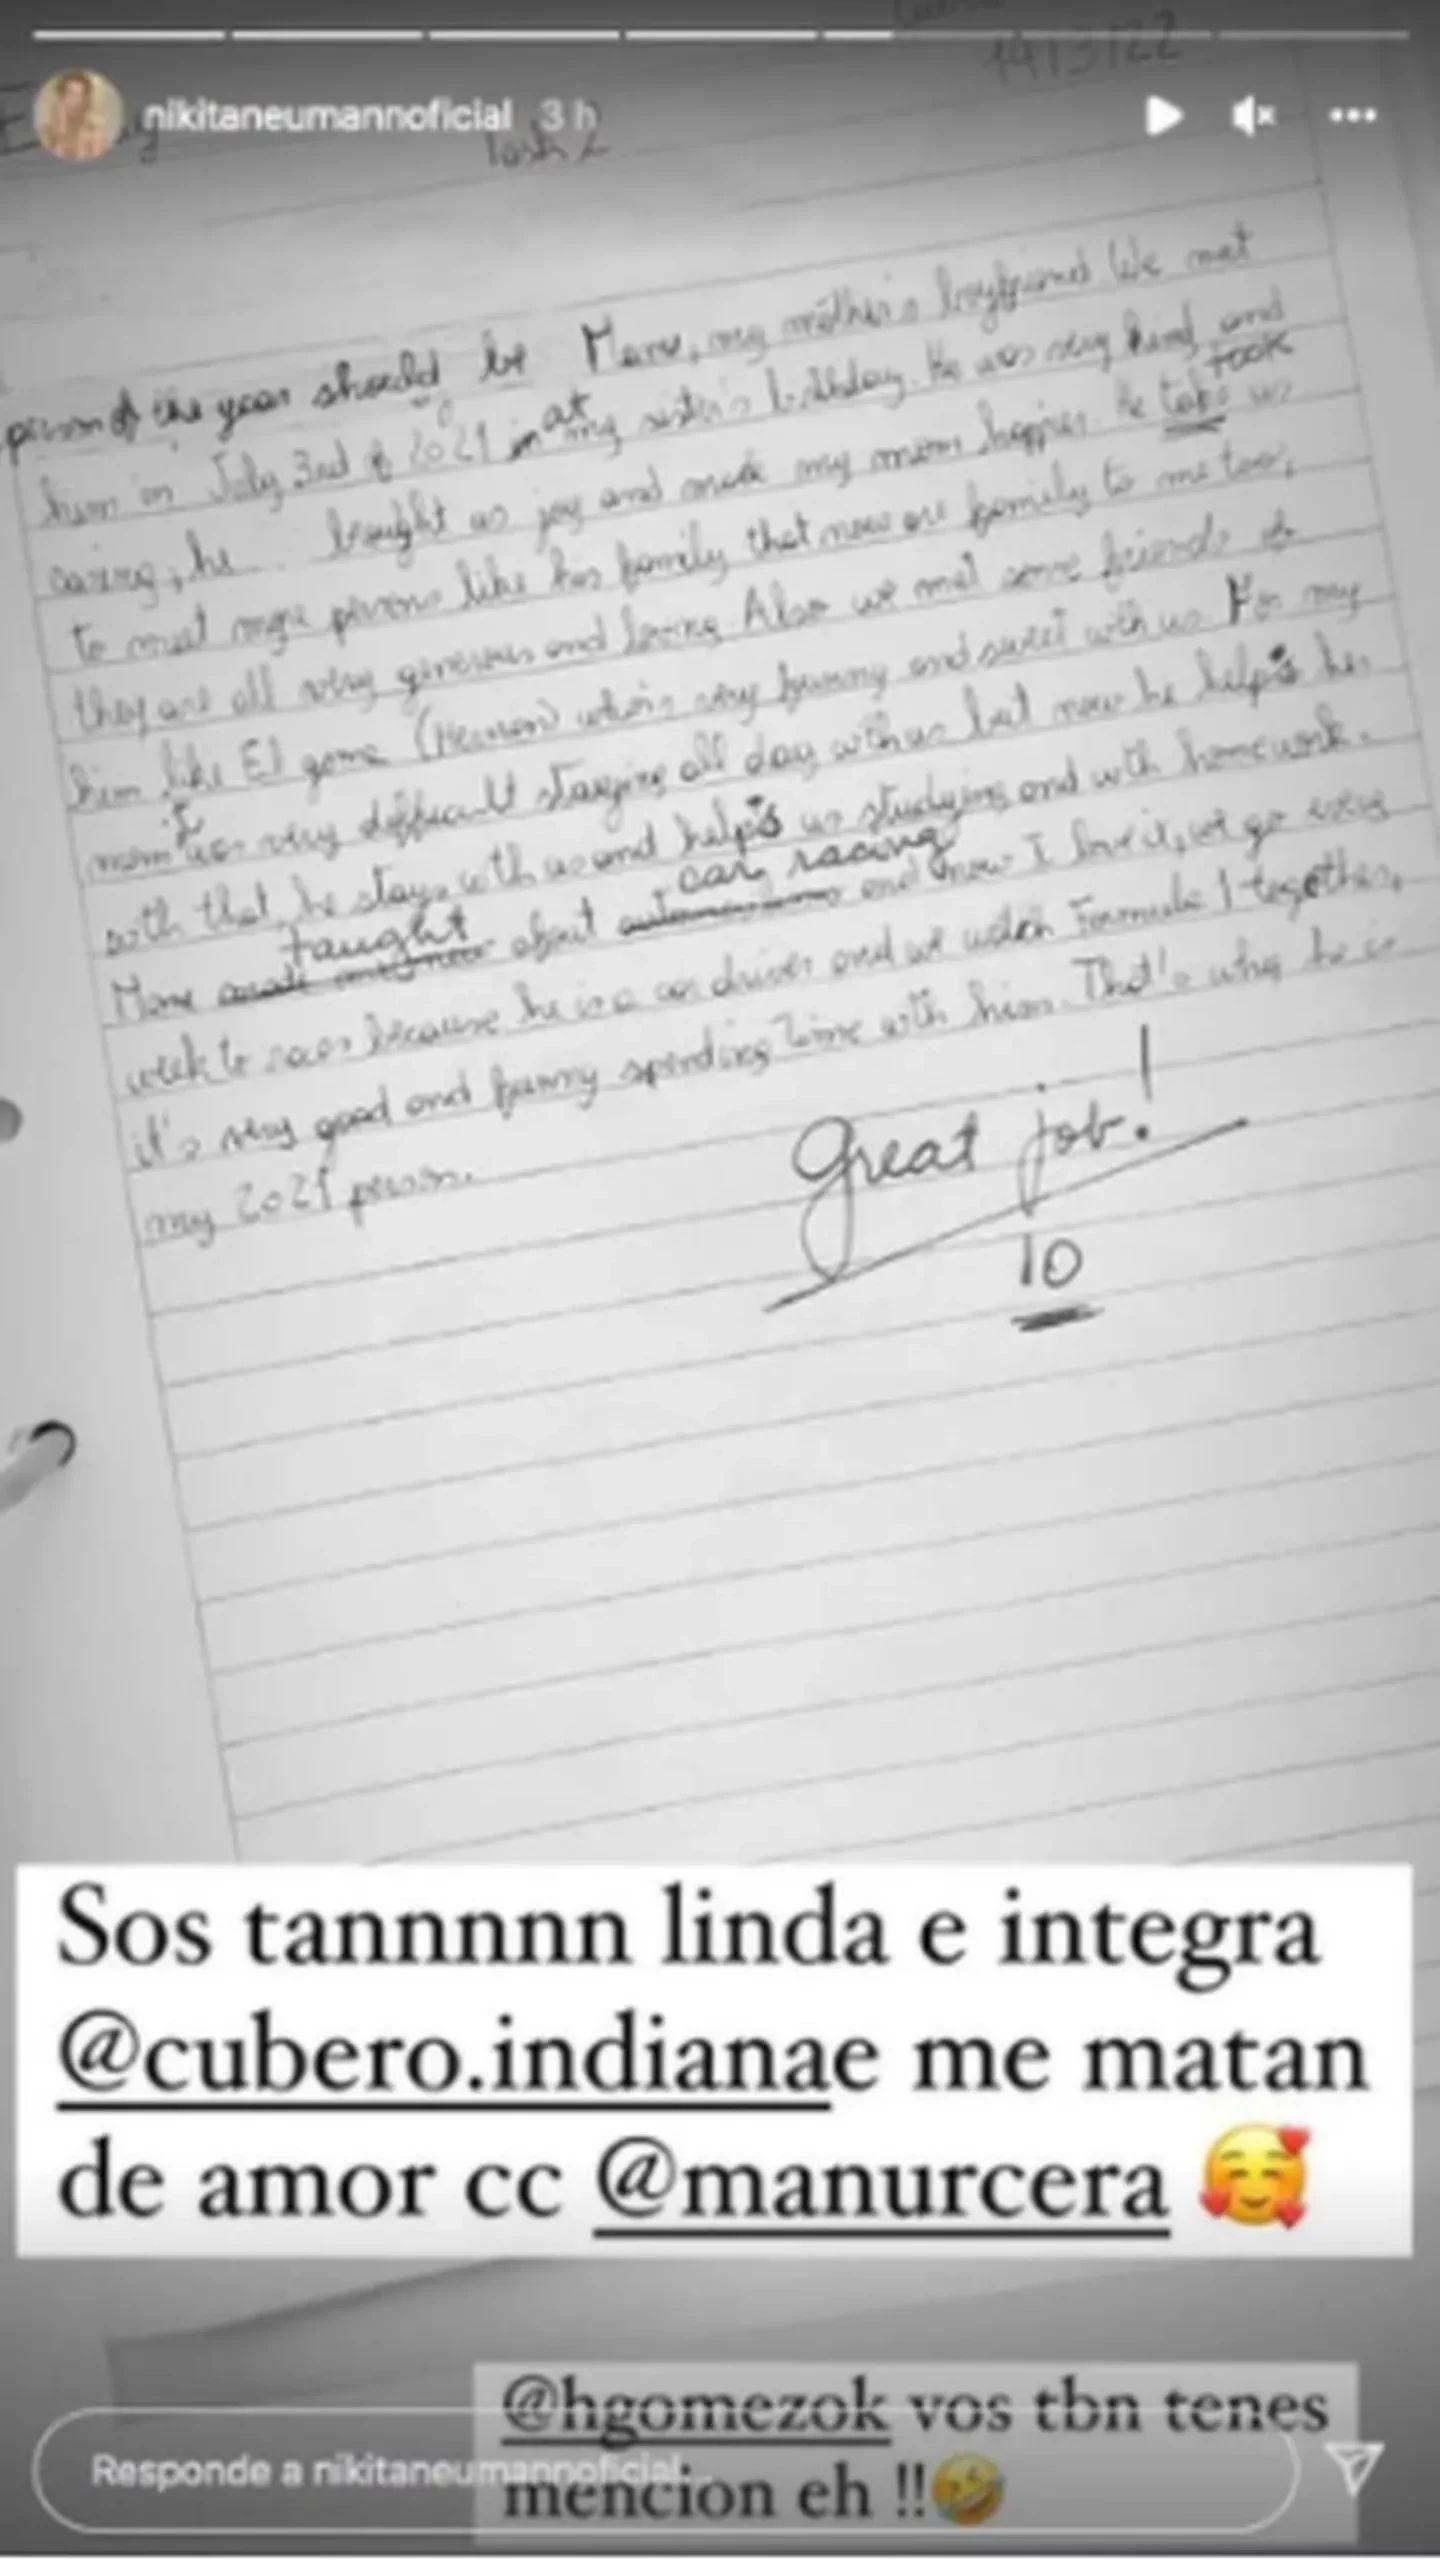 19/3/22
nikitaneumannoficial 3 h
Task 2
person of the year should be Manu, my mother's boyfriend We met
him in July 3rd of 2021 in at my sister's birthday. He was very kind and
caring, he brought us joy and made my mom happier. He take took us
to meet more persons like his family that now are family to me too,
they are all very generous and loving. Also we met some friends of
him like El gome (Hernan) who's very funny and sweet with us For my
mom was very difficult staying all day with us but now he helps her
with that, he stays with us and helps us studying and with homework.
Manu taught about car racing and now I love it, we go every
week to races because he is a car driver and we watch Formula 1 together,
it's very good and funny spending time with him. That's why he is
my 2021 person.
Great job!
10
Sos tannnnn linda e integra
@cubero.indianae me matan
de amor cc @manurcera 🥰
@hgomezok vos tbn tenes
Responde a nikitaneumannoficial...
mencion eh !!🤣